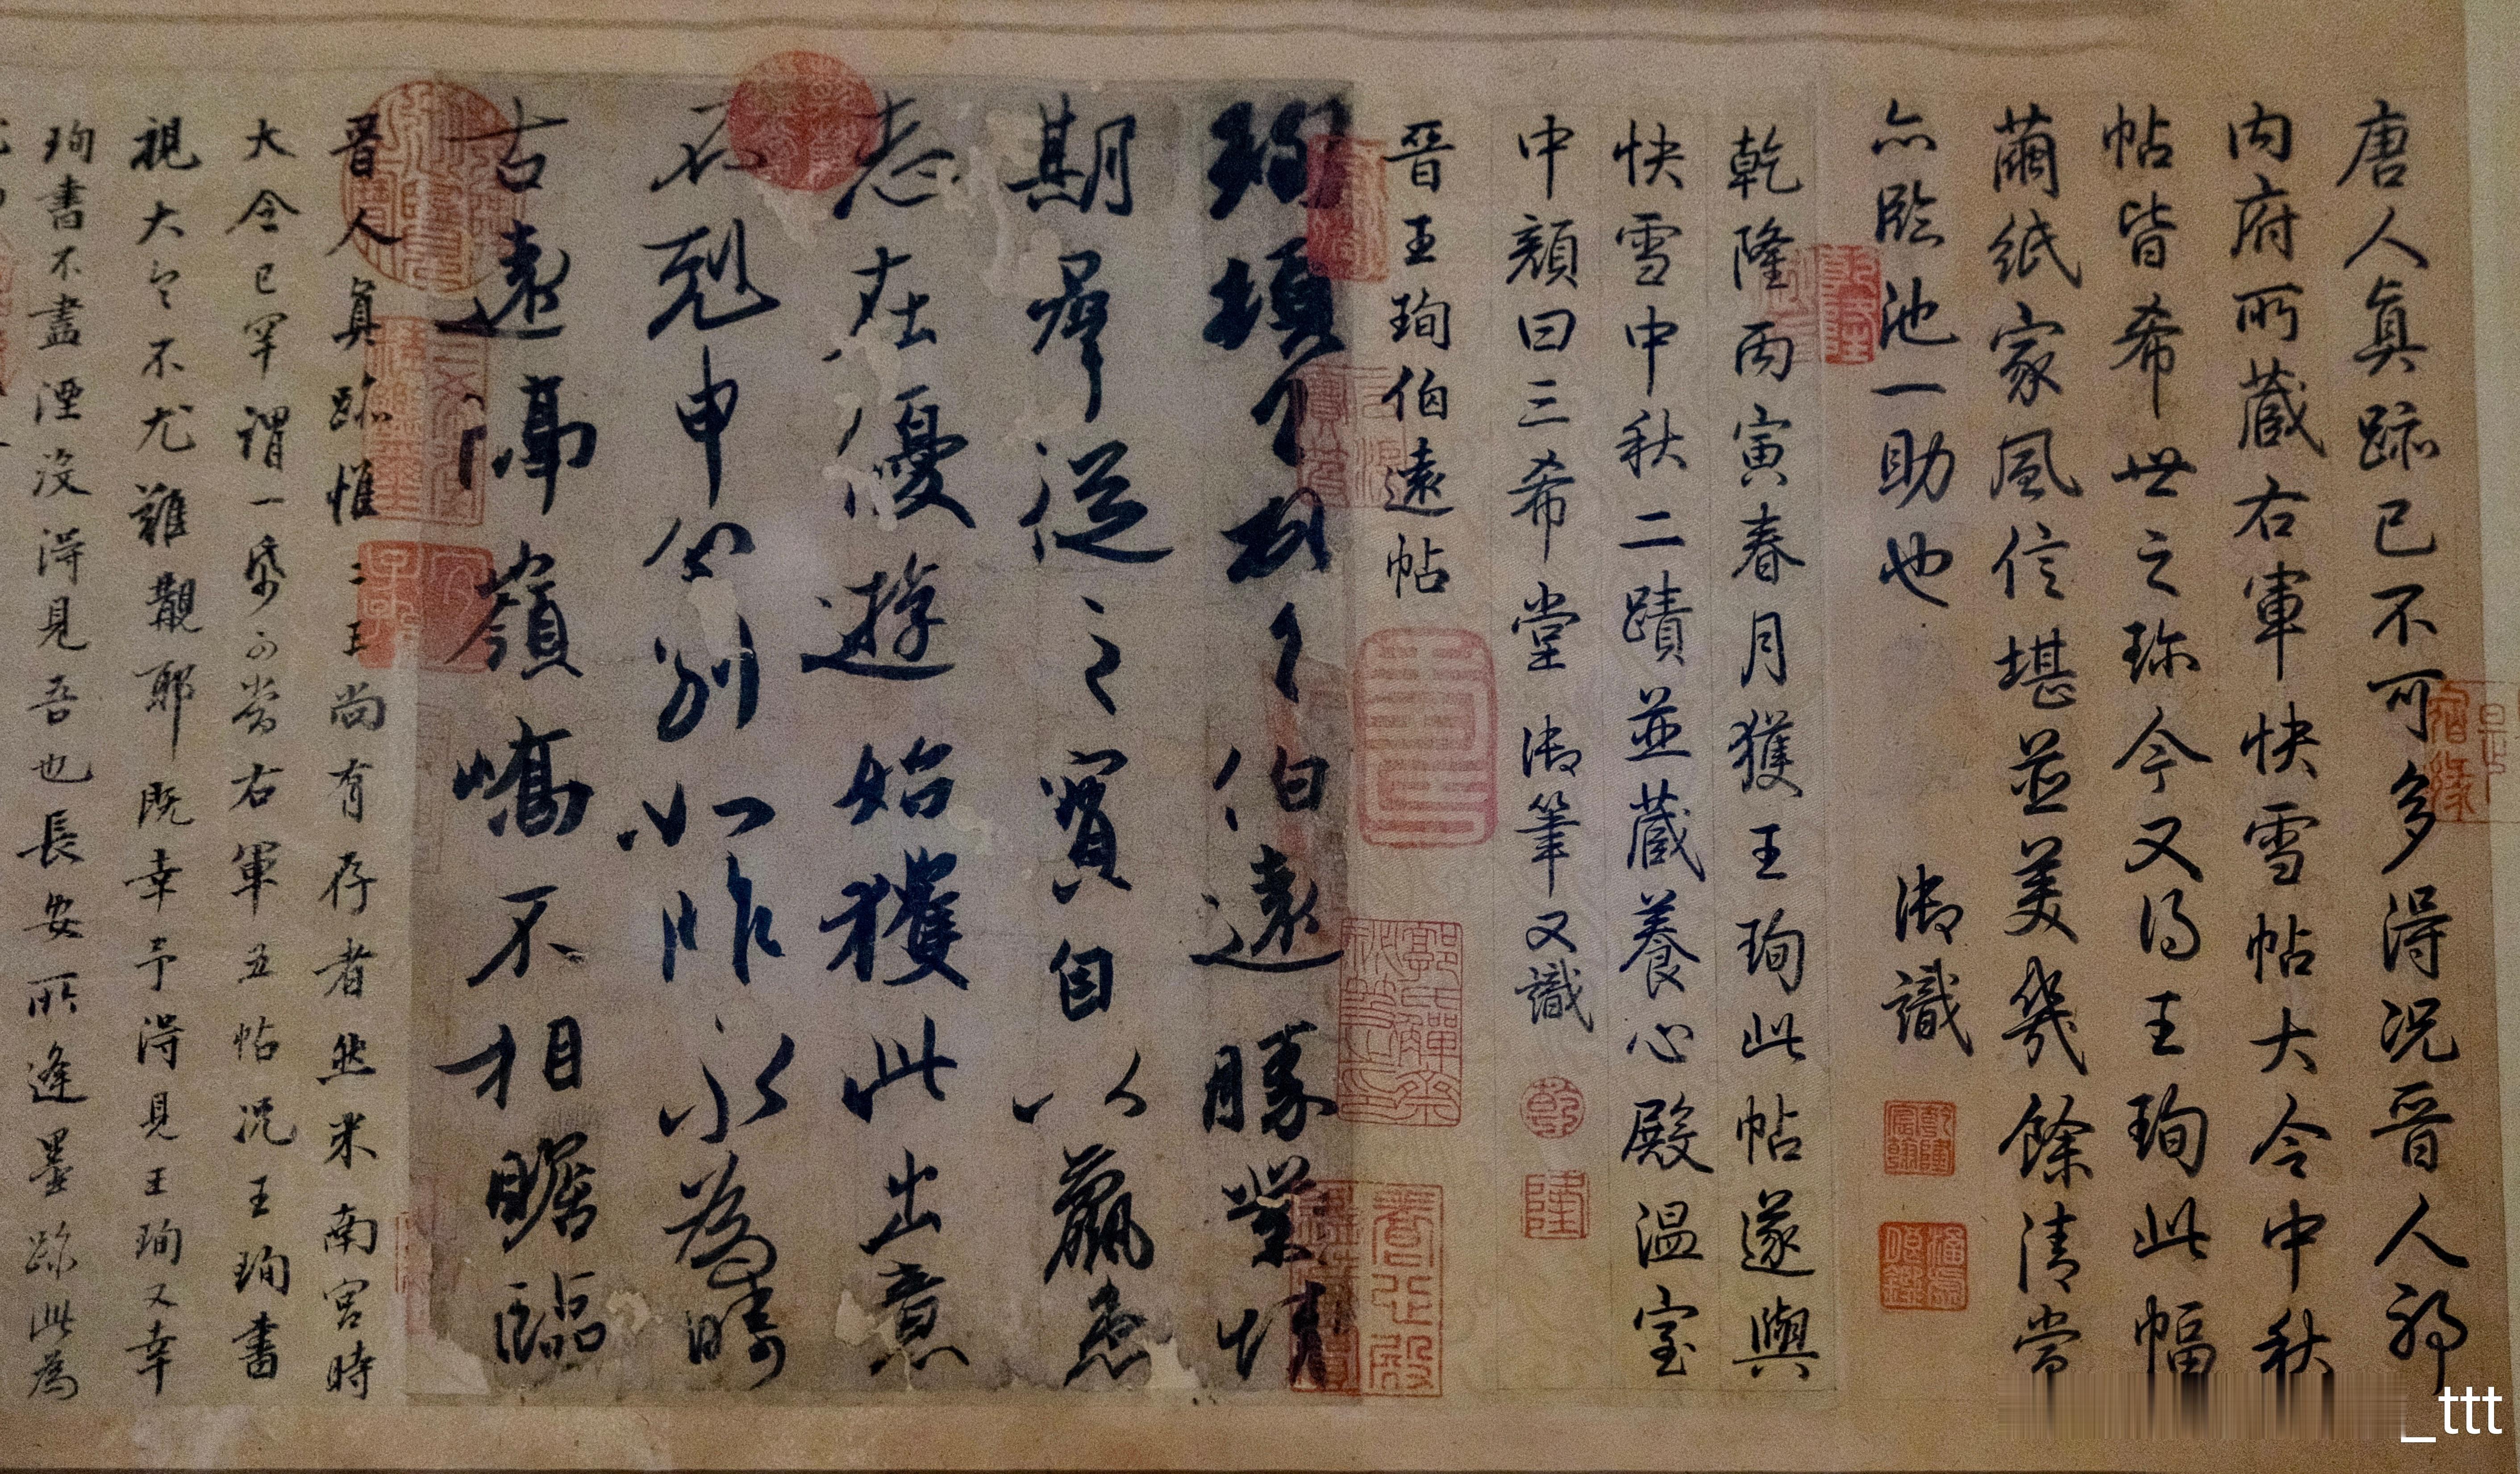 唐人真跡已不可多得況晉人耶
內府所藏右軍快雪帖大令中秋
帖皆希世之珎今又得王珣此幅
繭紙家風信堪並美幾餘清賞
亦臨池一助也 御識
乾隆丙寅春月獲王珣此帖遂與
快雪中秋二蹟並藏養心殿溫室
中顏曰三希堂 御筆又識
乾
隆
晉王珣伯遠帖
珣頓首頓首伯遠勝業情
期羣從之寶自以羸患
志在優遊始獲此出意
不剋申分別如昨永為疇
古遠隔嶺嶠不相瞻臨
晉人真跡惟二王尚有存者然米南宮時
大令已罕謂一紙可當右軍五帖況王珣書
視大令不尤難覯耶既幸予得見王珣又幸
珣書不盡湮沒得見吾也長安所逢墨跡此為
_ttt